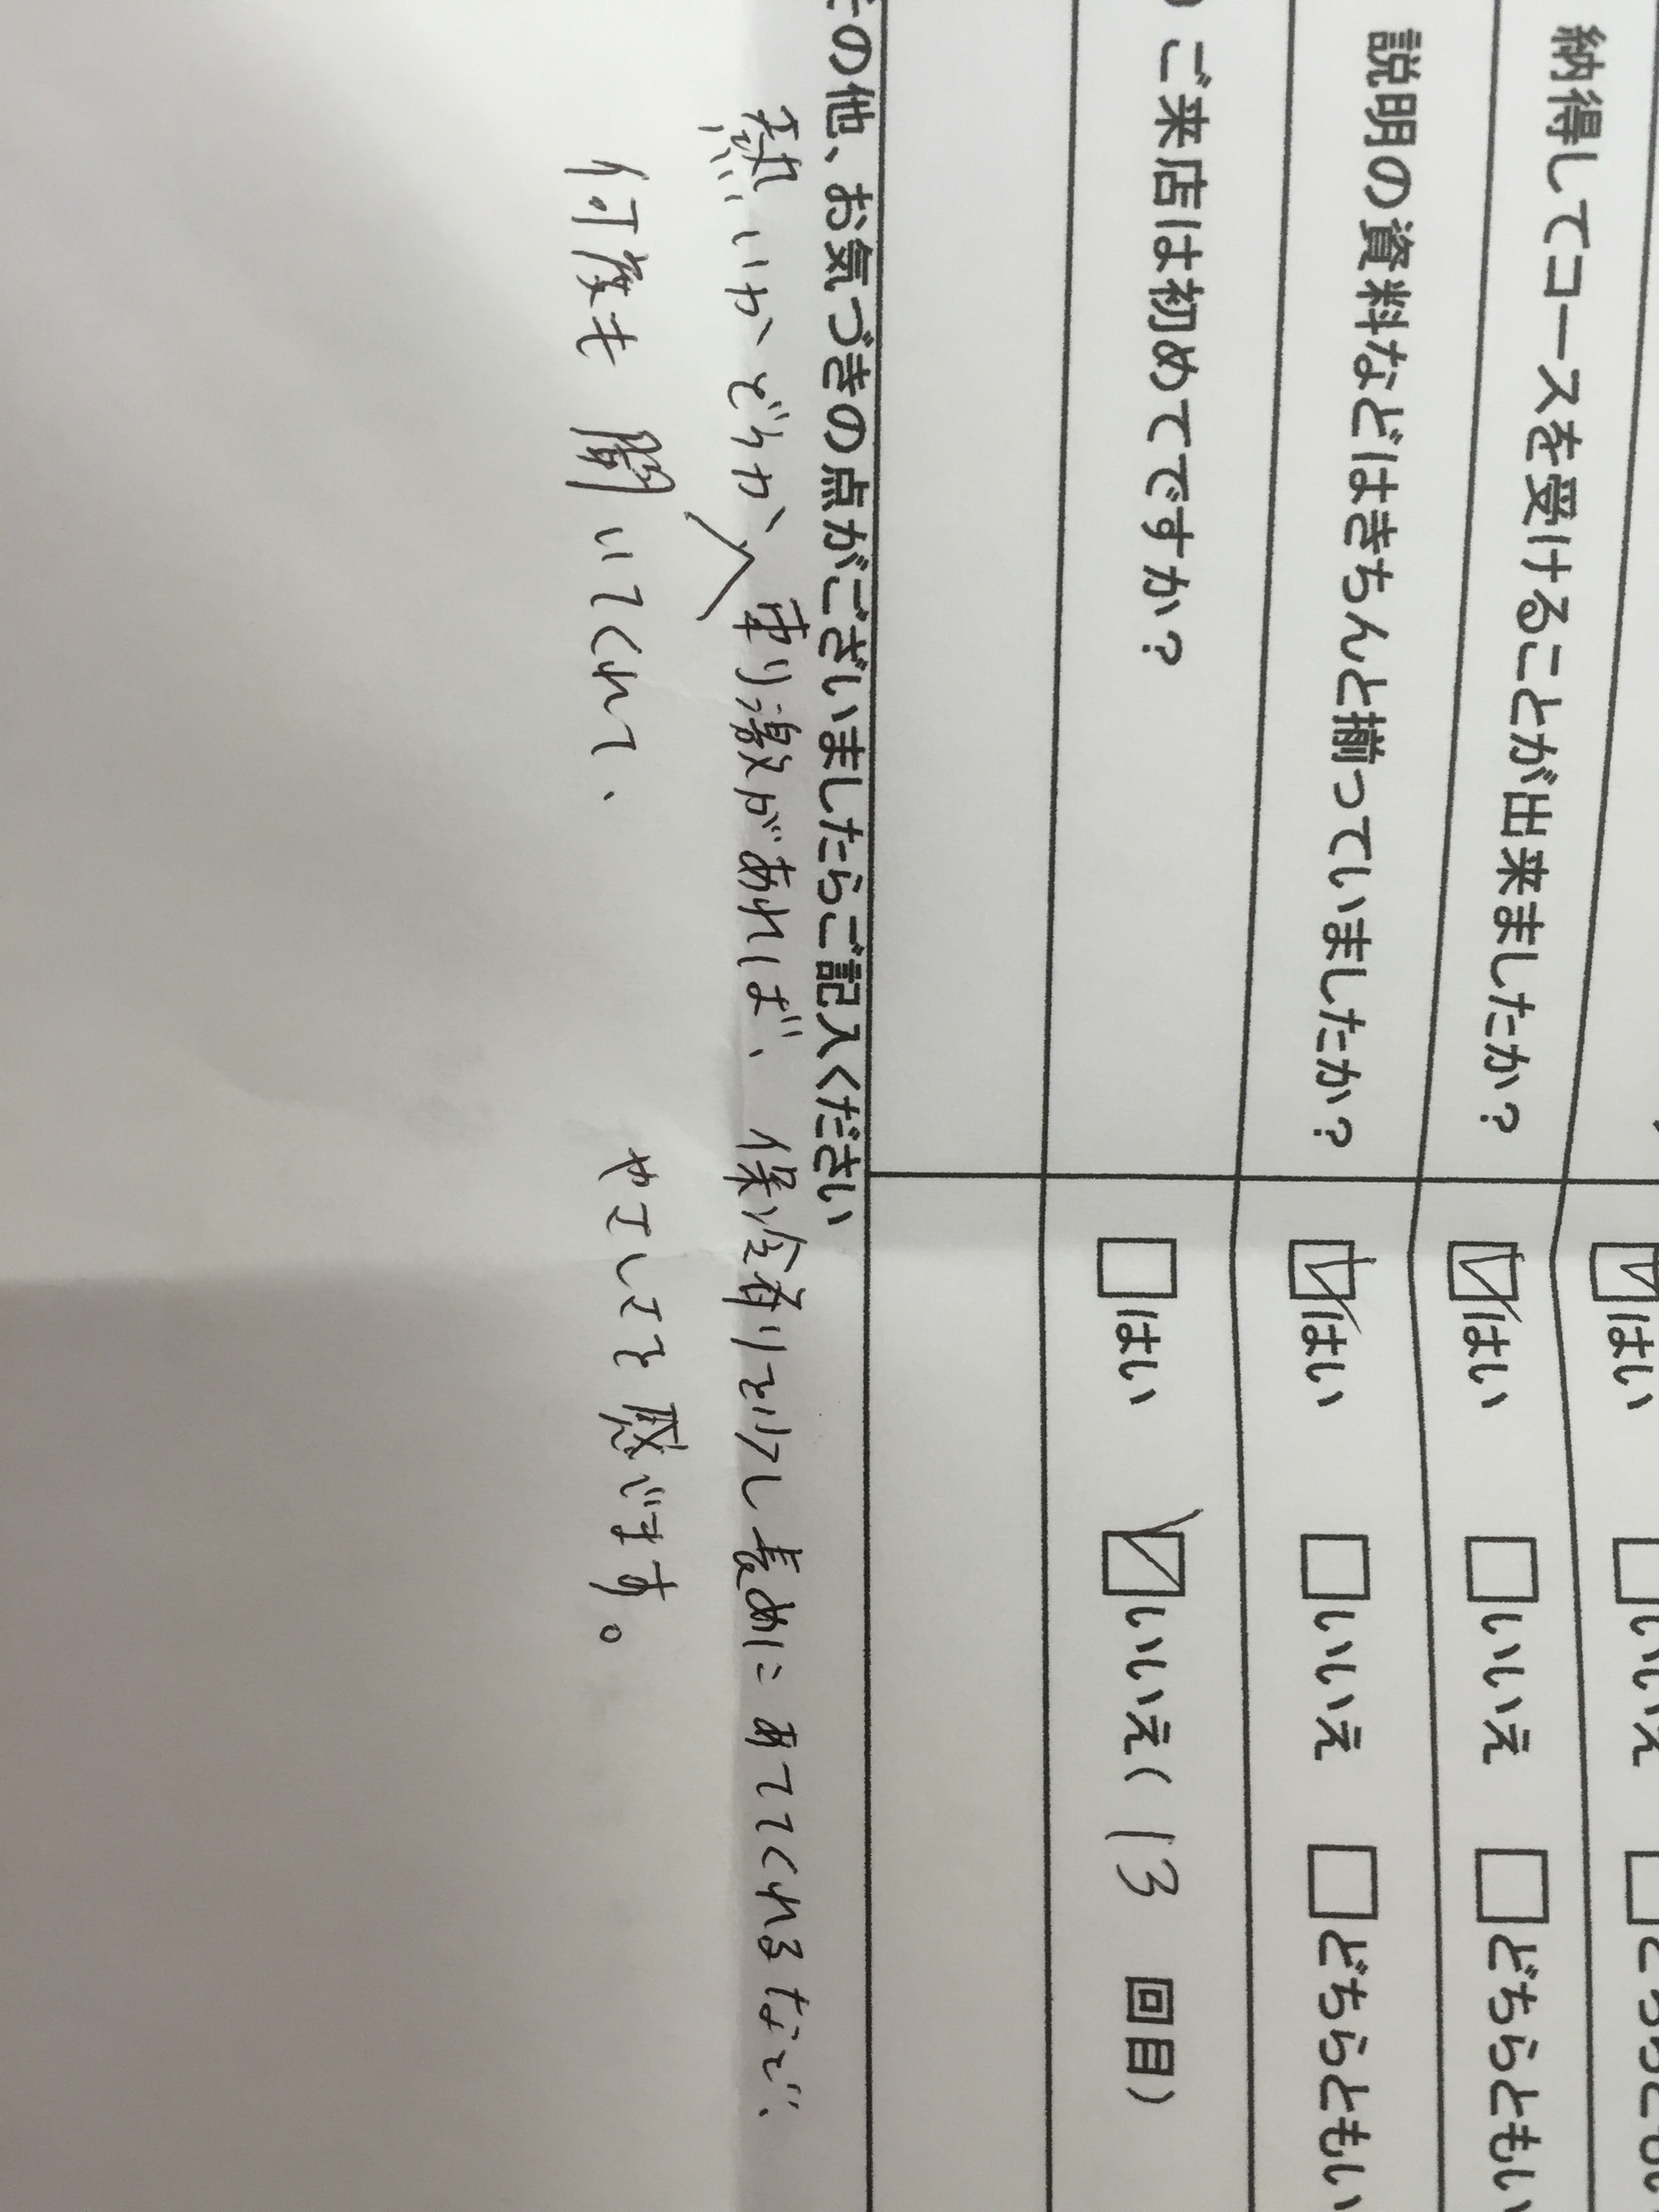 ☑はい □いいえ
納得してコースを受けることが出来ましたか? ☑はい □いいえ □どちらともい
説明の資料などはきちんと揃っていましたか? ☑はい □いいえ □どちらともい
ご来店は初めてですか? □はい ☑いいえ( 13 回目)
その他、お気づきの点がございましたらご記入ください
熱いかどうか、刺激があれば、保冷剤を少し長めにあててくれるなど、
何度も聞いてくれて、 やさしさを感じます。